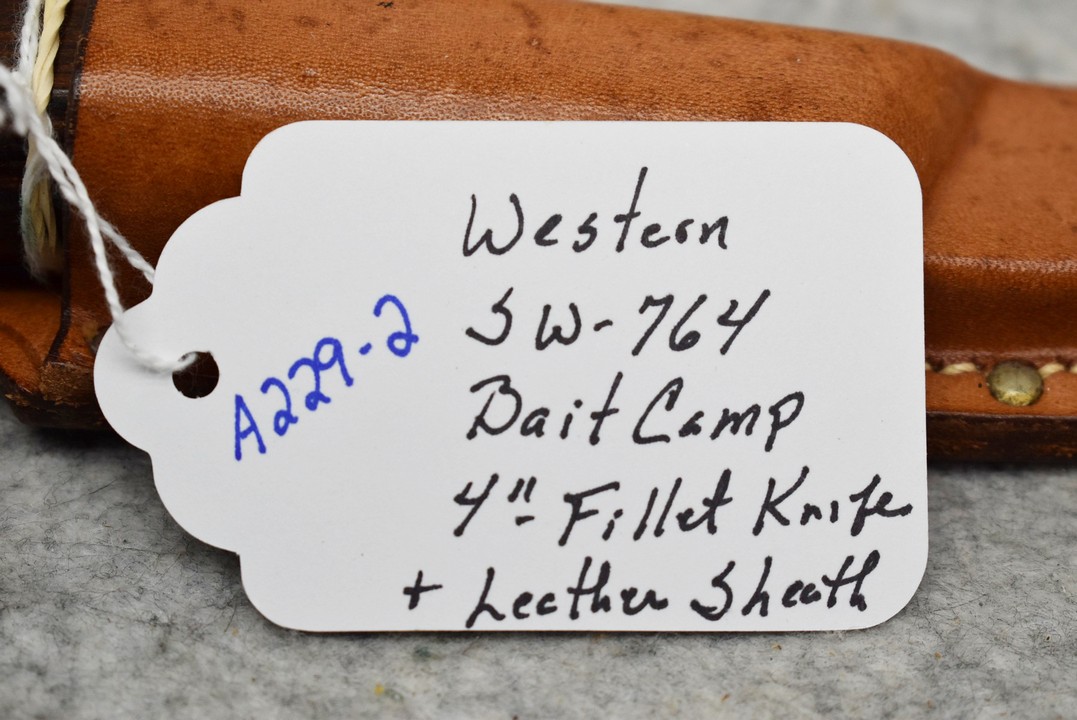 Western
SW-764
Bait Camp
4" Fillet Knife
+ Leather Sheath
A229-2